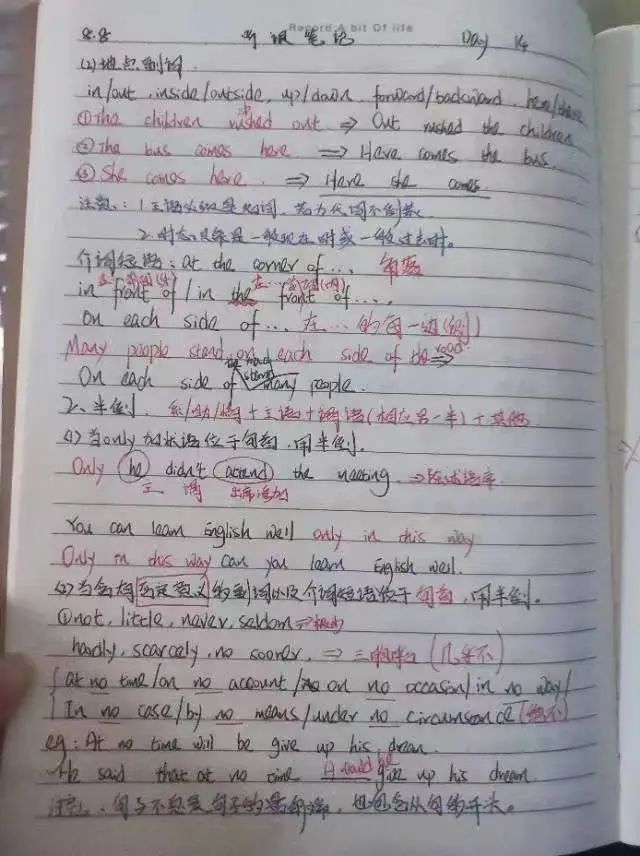 Record A bit Of life
8.8 听课笔记 Day 14
(2)地点副词
in/out, inside/outside, up/down, forward/backward, here/there
①The children rushed out ⇒ Out rushed the children
②The bus comes here ⇒ Here comes the bus.
③She comes here. ⇒ Here she comes.
注意: 1.主语必须是名词,若为代词不倒装
2.时态只能是一般现在时或一般过去时。
介词短语: at the corner of... 角落
in front of / in the front of ....
on each side of ... 在...的每一边(侧)
Many people stand on each side of the road ⇒
On each side of the road stand many people.
2、半倒. 系/助/情+主语+谓语(相应另一半)+其他
(1)当only加状语位于句首,用半倒。
Only he didn't attend the meeting. → 陈述语序
主 谓
You can learn English well only in this way
Only in this way can you learn English well.
(2)当含有否定意义的副词以及介词短语位于句首,用半倒。
①not, little, never, seldom
hardly, scarcely, no sooner, ⇒ (几乎不)
at no time/on no account/ on no occasion/in no way/
In no case/by no means/under no circumstance
eg: At no time will be give up his dream.
He said that at no time would he give up his dream.
注意: 句首不